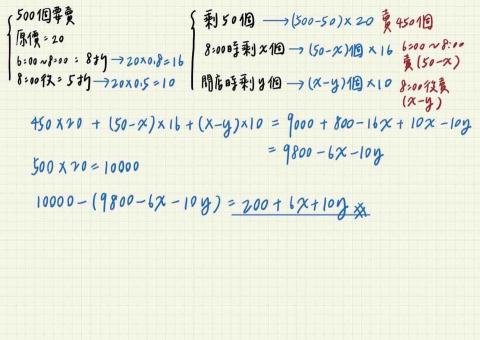 500個要賣
原價=20
6:00~8:00 : 8折 → 20×0.8=16
8:00後=5折 → 20×0.5=10
剩50個 → (500-50)×20 賣450個
8:00時剩x個 → (50-x)個×16 6:00~8:00賣(50-x)
關店時剩y個 → (x-y)個×10 8:00後賣(x-y)
450×20 + (50-x)×16 + (x-y)×10 = 9000 + 800-16x + 10x-10y
= 9800-6x-10y
500×20=10000
10000-(9800-6x-10y) = 200+6x+10y ※